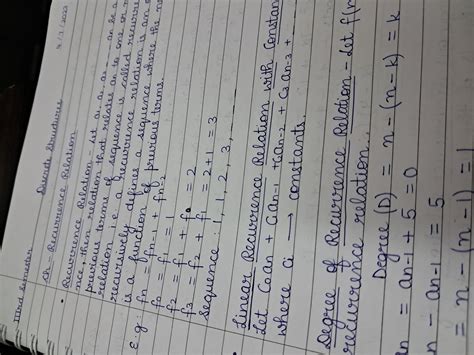 4/7/2022
IIIrd Semester
Discrete Structures
Ch - Recurrence Relation
Recurrence Relation - Let a₀, a₁, a₂ - - an be a
nce then relation that relates an to one or m
previous terms of sequence is called recurre
relation i.e. a recurrence relation is an e
recursively defines a sequence where the n
is a function of previous terms.
E.g: fn = fn-1 + fn-2
f0 = f1 = 1
f2 = f1 + f0 = 2
f3 = f2 + f1 = 2+1 = 3
Sequence 1, 1, 2, 3,
Linear Recurrence Relation with Constan
Let C0an + C1an-1 + C2an-2 + C3an-3 +
where Ci → constants.
Degree of Recurrence Relation - Let f(n
recurrence relation.
Degree (D) = n - (n-k) = k
n = an-1 + 5 = 0
n - an-1 = 5
= n - (n-1) = 1